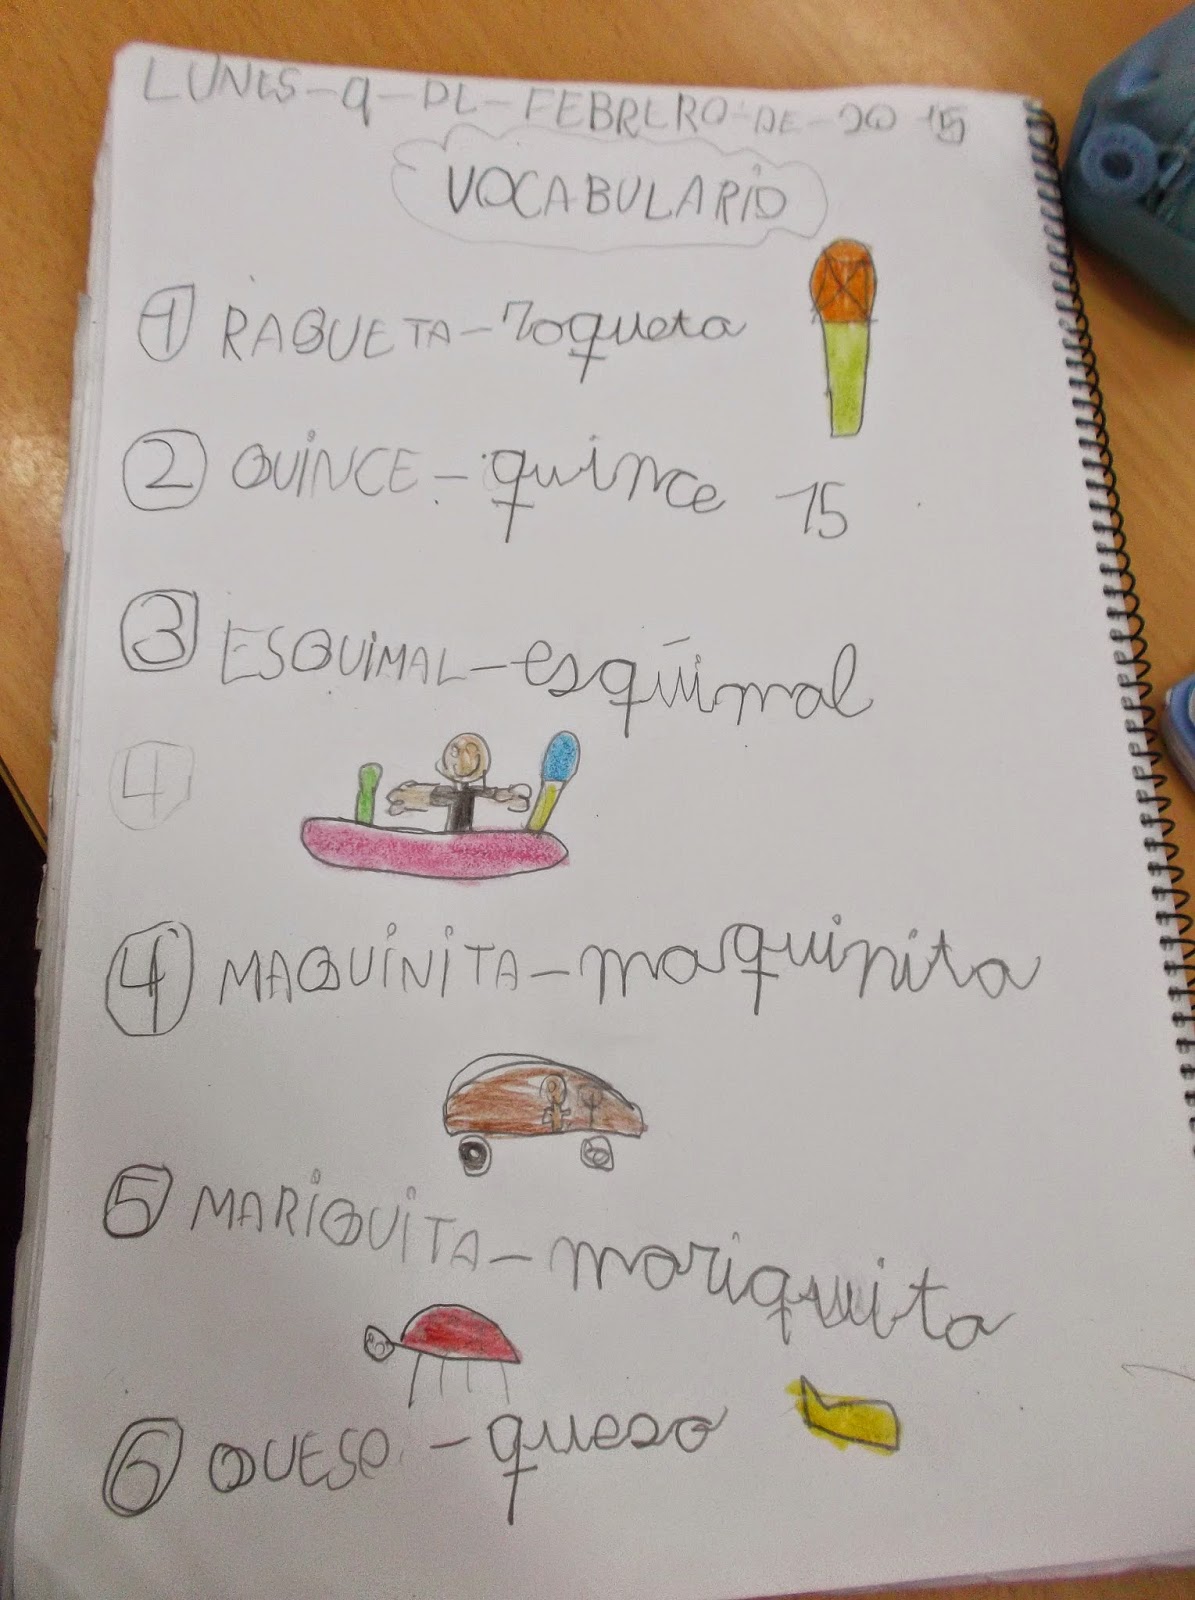 LUNES-9-DE-FEBRERO-DE-2015
VOCABULARIO
1 RAQUETA-raqueta
2 QUINCE-quince 15
3 ESQUIMAL-esquimal
4
4 MAQUINITA-maquinita
5 MARIQUITA-mariquita
6 QUESO-queso